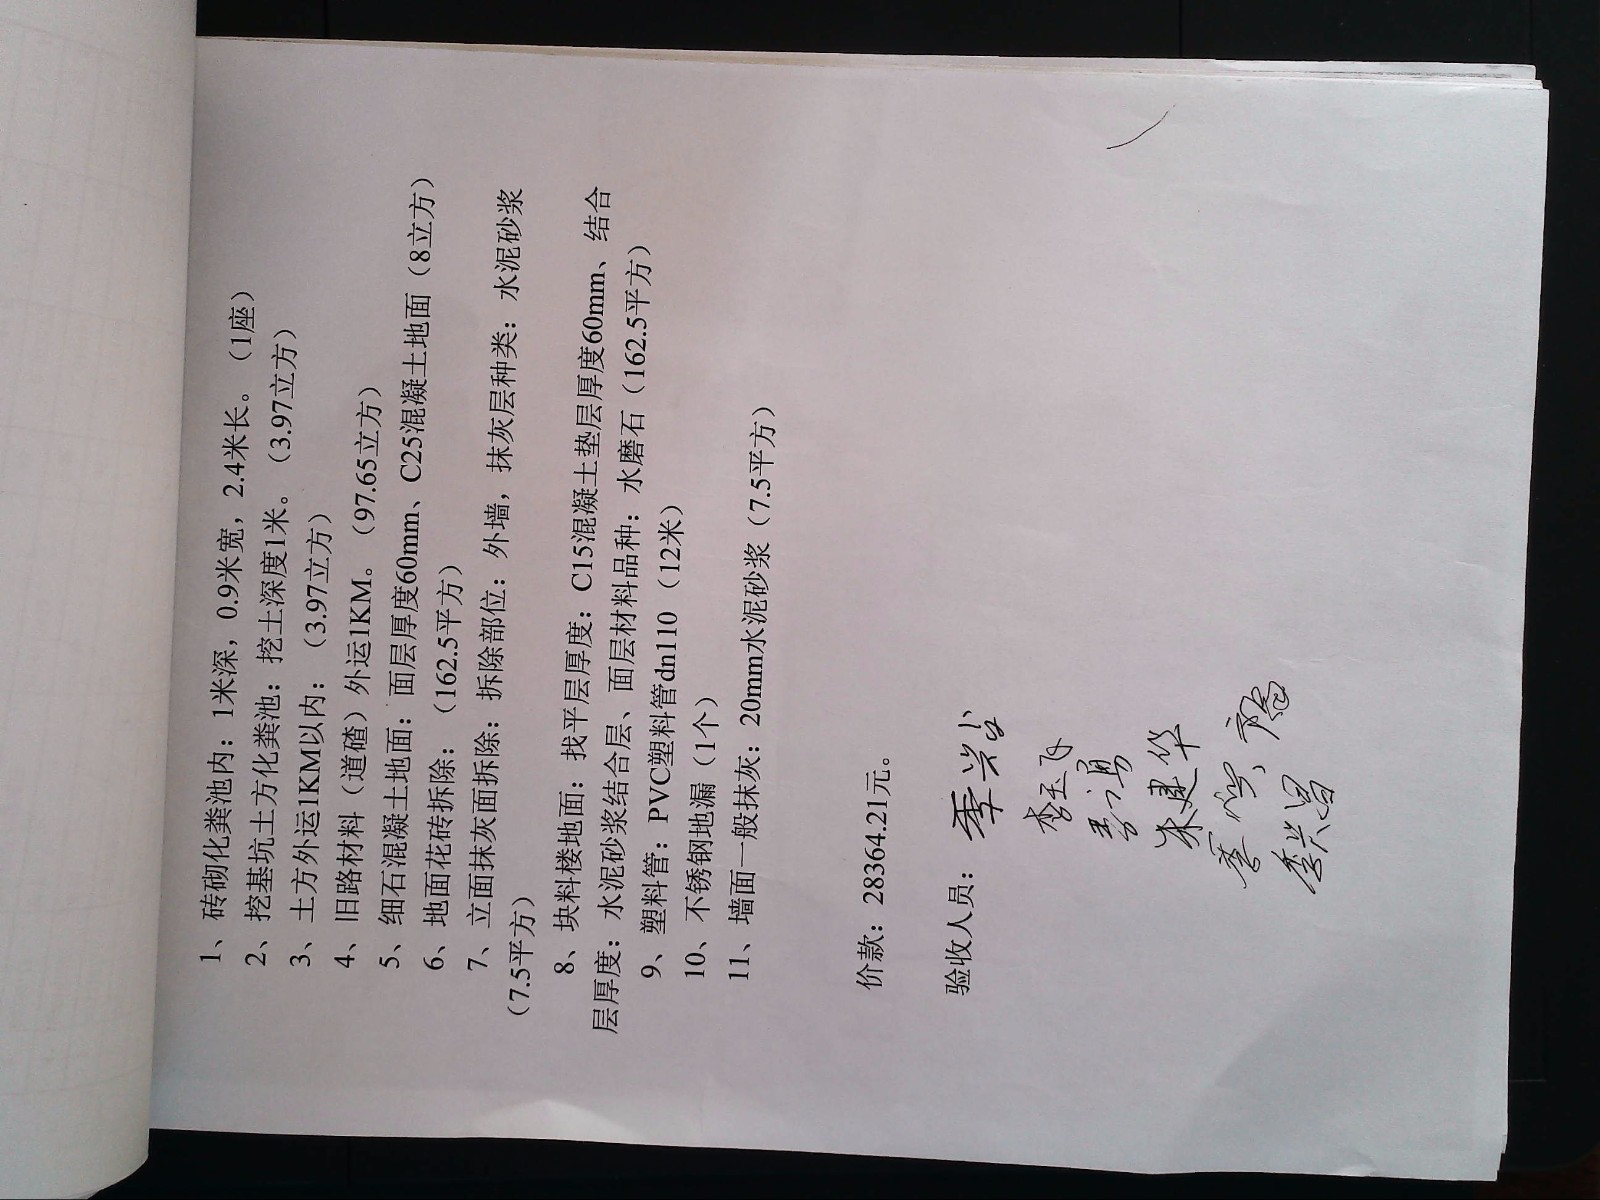 1、砖砌化粪池内：1米深，0.9米宽，2.4米长。（1座）
2、挖基坑土方化粪池：挖土深度1米。（3.97立方）
3、土方外运1KM以内：（3.97立方）
4、旧路材料（道碴）外运1KM。（97.65立方）
5、细石混凝土地面：面层厚度60mm、C25混凝土地面（8立方）
6、地面花砖拆除：（162.5平方）
7、立面抹灰面拆除：拆除部位：外墙，抹灰层种类：水泥砂浆
（7.5平方）
8、块料楼地面：找平层厚度：C15混凝土垫层厚度60mm、结合
层厚度：水泥砂浆结合层、面层材料品种：水磨石（162.5平方）
9、塑料管：PVC塑料管dn110（12米）
10、不锈钢地漏（1个）
11、墙面一般抹灰：20mm水泥砂浆（7.5平方）
价款：28364.21元。
验收人员：
李玉飞
朱建华
季兴昌